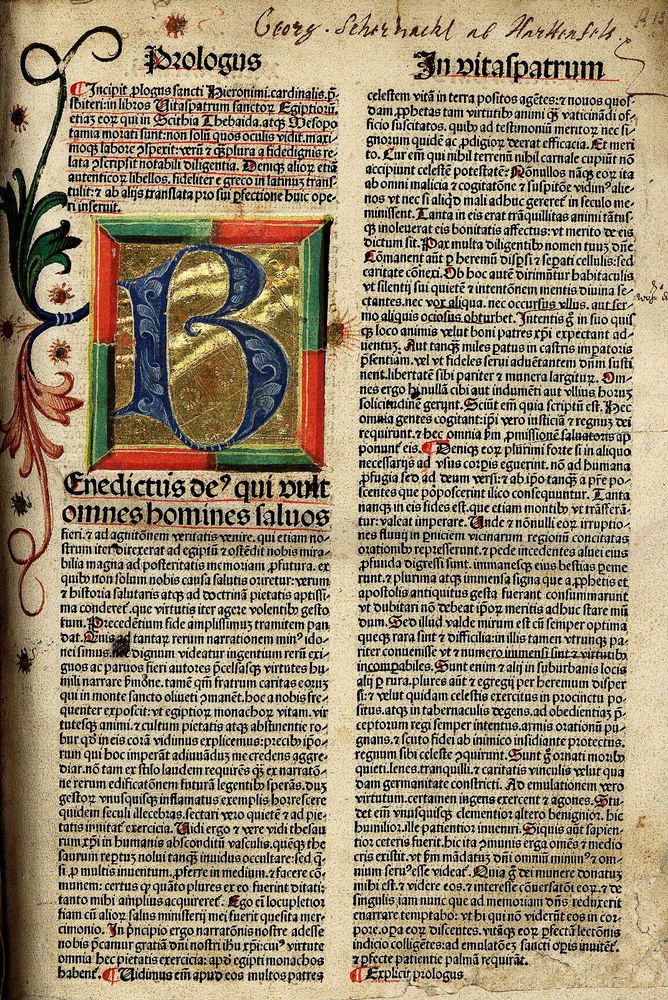 Georg. Schernackl ab Harttensels.
Prologus
In vitaspatrum
Incipit plogus sancti Hieronimi. cardinalis. p̄-
sbiteri: in libros Uitaspatrum sanctoꝝ Egiptioꝝ.
etiā eoꝝ qui in Scithia Thebaida. atqꝫ Mesopo
tamia morati sunt: non solū quos oculis vidit. maxi
moqꝫ labore ꝯspexit: verū ⁊ qꝫplura a fidedignis re
lata ꝯscripsit notabili diligentia. Deniqꝫ alioꝝ etiā
autenticoꝝ libellos. fideliter e greco in latinuꝫ trans
tulit: ⁊ ab alijs translata pro sui ꝑfectione huic ope-
ri inseruit.
B
Enedictus deꝰ qui vult
omnes homines saluos
fieri. ⁊ ad agnitōnem veritatis venire. qui etiam no-
strum iter direxerat ad egiptū ⁊ oſtēdit nobis mira-
bilia magna ad posteritatis memoriam ꝓfutura. ex
quibꝰ non solum nobis causa salutis oriretur: verum
⁊ historia salutaris atqꝫ ad doctrinā pietatis aptissi-
ma conderet̄. que virtutis iter agere volentibꝰ gesto
rum. Precedētium fide amplissimuꝫ tramitem pan
dat.
neissimus. dignum videatur ingentium rerū exi-
guos ac paruos fieri autores ꝓcelsasqꝫ virtutes hu
mili narrare ẜmōne. tamē qm̄ fratrum caritas eoruꝫ
qui in monte sancto oliueti ꝯmanēt. hoc a nobis fre-
quenter exposcit: vt egiptioꝝ monachoꝝ vitam. vir
tutesqꝫ animi. ⁊ cultum pietatis atqꝫ abstinētie ro-
bur qd̓ in eis corā vidimus explicemus: precibꝰ ip̄o-
rum qui hoc imperāt adiuuāduꝫ me credens aggre
diar. nō tam ex stilo laudem requirēs qꝫ ex narratō-
ne rerum edificatōnem futurā legentibꝰ sperās. duꝫ
gestoꝝ vnusquisqꝫ inflamatus exemplis horrescere
quidem seculi illecebras. sectari vero quietē ⁊ ad pie-
tatis inuitat̄ exercicia. Uidi ergo ⁊ vere vidi thesau
rum xp̄i in humanis absconditū vasculis. quēqꝫ the
saurum reptuꝫ nolui tanqꝫ inuidus occultare: sed q̄
si ꝓ multis inuentum. ꝓferre in medium. ⁊ facere cō-
munem: certus ꝙ quāto plures ex eo fuerint ditati:
tanto mihi amplius acquireret̄. Ego em̄ locupletior
fiam cū alioꝝ salus ministerij mei fuerit quesita mer-
cimonio. In p̄ncipio ergo narratōnis nostre adesse
nobis p̄camur gratiā dn̄i nostri ihu xp̄i: cuiꝰ virtute
omnia hec pietatis exercicia: apd̓ egipti monachos
habent̄. Uidimus em̄ apud eos multos patres
celestem vitā in terra positos agētes: ⁊ nouos quos-
dam. ꝓphetas tam virtutibꝰ animi qꝫ vaticinādi of-
ficio suscitatos. quibꝰ ad testimoniū meritoꝝ nec si-
gnorum quidē ac ꝓdigioꝝ deerat efficacia. Et meri
to. Cur em̄ qui nihil terrenū nihil carnale cupiūt nō
accipiunt celestē potestatē? Nōnullos nāqꝫ eoꝝ ita
ab omni malicia ⁊ cogitatōne ⁊ suspitōe vidimꝰ alie-
nos vt nec si aliqd̓ mali adhuc gereret̄ in seculo me
minissent. Tanta in eis erat trāquillitas animi tātus-
qꝫ inoleuerat eis bonitatis affectus: vt merito de eis
dictum sit. Pax multa diligentibꝰ nomen tuuꝫ dn̄e
Cōmanent aūt ꝑ heremū disꝑsi ⁊ seꝑati cellulis: sed
caritate cōnexi. Ob hoc autē dirimūtur habitaculis
vt silentij sui quietē ⁊ intentōnem mentis diuina se-
ctantes. nec vox aliqua. nec occursus vllus. aut ser-
mo aliquis ociosus obturbet. Intentis g̊ in suo quis
qꝫ loco animis velut boni patres xp̄i expectant ad-
uentuꝫ. Aut tanqꝫ miles ꝑatus in castris imꝑatoris
p̄sentiam. vel vt fideles serui aduētantem dn̄m susti
nent. libertatē sibi pariter ⁊ munera largituꝝ. Om-
nes ergo hi nulla cibi aut indumēti aut vllius horuꝫ
solicitudine gerūnt. Sciūt em̄ quia scriptū est. Hec
omnia gentes cogitant: ip̄i vero iusticiā ⁊ regnuꝫ dei
requirunt. ⁊ hec omnia ẜm ꝓmissionē saluatoris ap
ponunt̄ eis. Deniqꝫ eoꝝ plurimi forte si in aliquo
necessarijs ad vsus corꝑis eguerint. nō ad humana
ꝑfugia sed ad deum versi: ⁊ ab ip̄o tanqꝫ a pr̄e po-
scentes que poposcerint illico consequuntur. Tanta
nanqꝫ in eis fides est. que etiam montibꝰ vt trāsferā-
tur: valeat imperare. Unde ⁊ nōnulli eoꝝ irruptio-
nes fluuij in ꝑniciem vicinarum regionū concitatas
orationibꝰ represserunt. ⁊ pede incedentes aluei eius
ꝓfunda digressi sunt. immanesqꝫ eius bestias peme
runt. ⁊ plurima atqꝫ immensa signa que a ꝓphetis et
apostolis antiquitus gesta fuerant consummarunt
vt dubitari nō debeat ip̄oꝝ meritis adhuc stare mū
dum. Sed illud valde mirum est cū semper optima
queqꝫ rara sunt ⁊ difficilia: in illis tamen vtrunqꝫ pa-
riter conuenisse vt ⁊ numero immensi sunt ⁊ virtutibꝰ
incompabiles. Sunt enim ⁊ alij in suburbanis locis
alij ꝑ rura. plures aūt ⁊ egregij per heremum disper
si: ⁊ velut quidam celestis exercitus in procinctu po
situs. atqꝫ in tabernaculis degens. ad obedientiaꝫ p̄-
ceptorum regi semper intentus. armis orationū pu-
gnans. ⁊ scuto fidei ab inimico insidiante protectus.
regnum sibi celeste ꝯquirunt. Sunt g̊ ornati moribꝰ
quieti. lenes. tranquilli. ⁊ caritatis vinculis velut qua
dam germanitate constricti. Ad emulationem vero
virtutum. certamen ingens exercent ⁊ agones. Stu-
det em̄ vnusquisqꝫ clementior altero benignior. hu-
milior. ille patientior inueniri. Siquis aūt sapien-
tior ceteris fuerit. hic ita ꝯmunis erga omēs ⁊ medio
cris existit. vt ẜm mādatuꝫ dn̄i omniū minimꝰ ⁊ om-
nium seruꝰ esse videat̄. Quia g̊ dei munere donatuꝫ
mihi est. ⁊ videre eos. ⁊ interesse cōuersatōi eoꝝ. ⁊ de
singulis iam nunc que ad memoriam dn̄s reduxerit
enarrare temptabo: vt hi qui nō viderūt eos in cor-
pore. oꝑa eoꝝ discentes. vitāqꝫ eoꝝ ꝑfectā lectionis
indicio colligētes: ad emulatōeꝫ sancti oꝑis inuitet̄.
⁊ ꝑfecte patientie palmā requirāt.
Explicit prologus